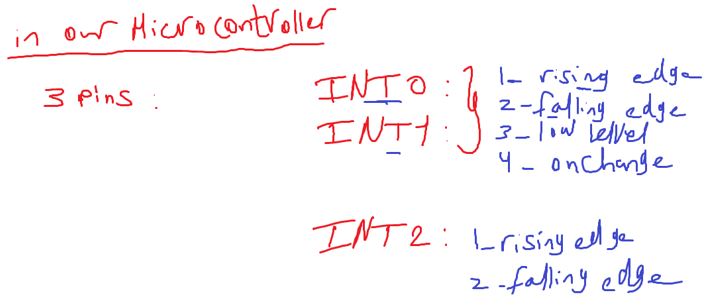 in our Microcontroller
3 pins :
INT0 :
INT1 :
1- rising edge
2- falling edge
3- low level
4- onChange
INT2 :
1- rising edge
2- falling edge